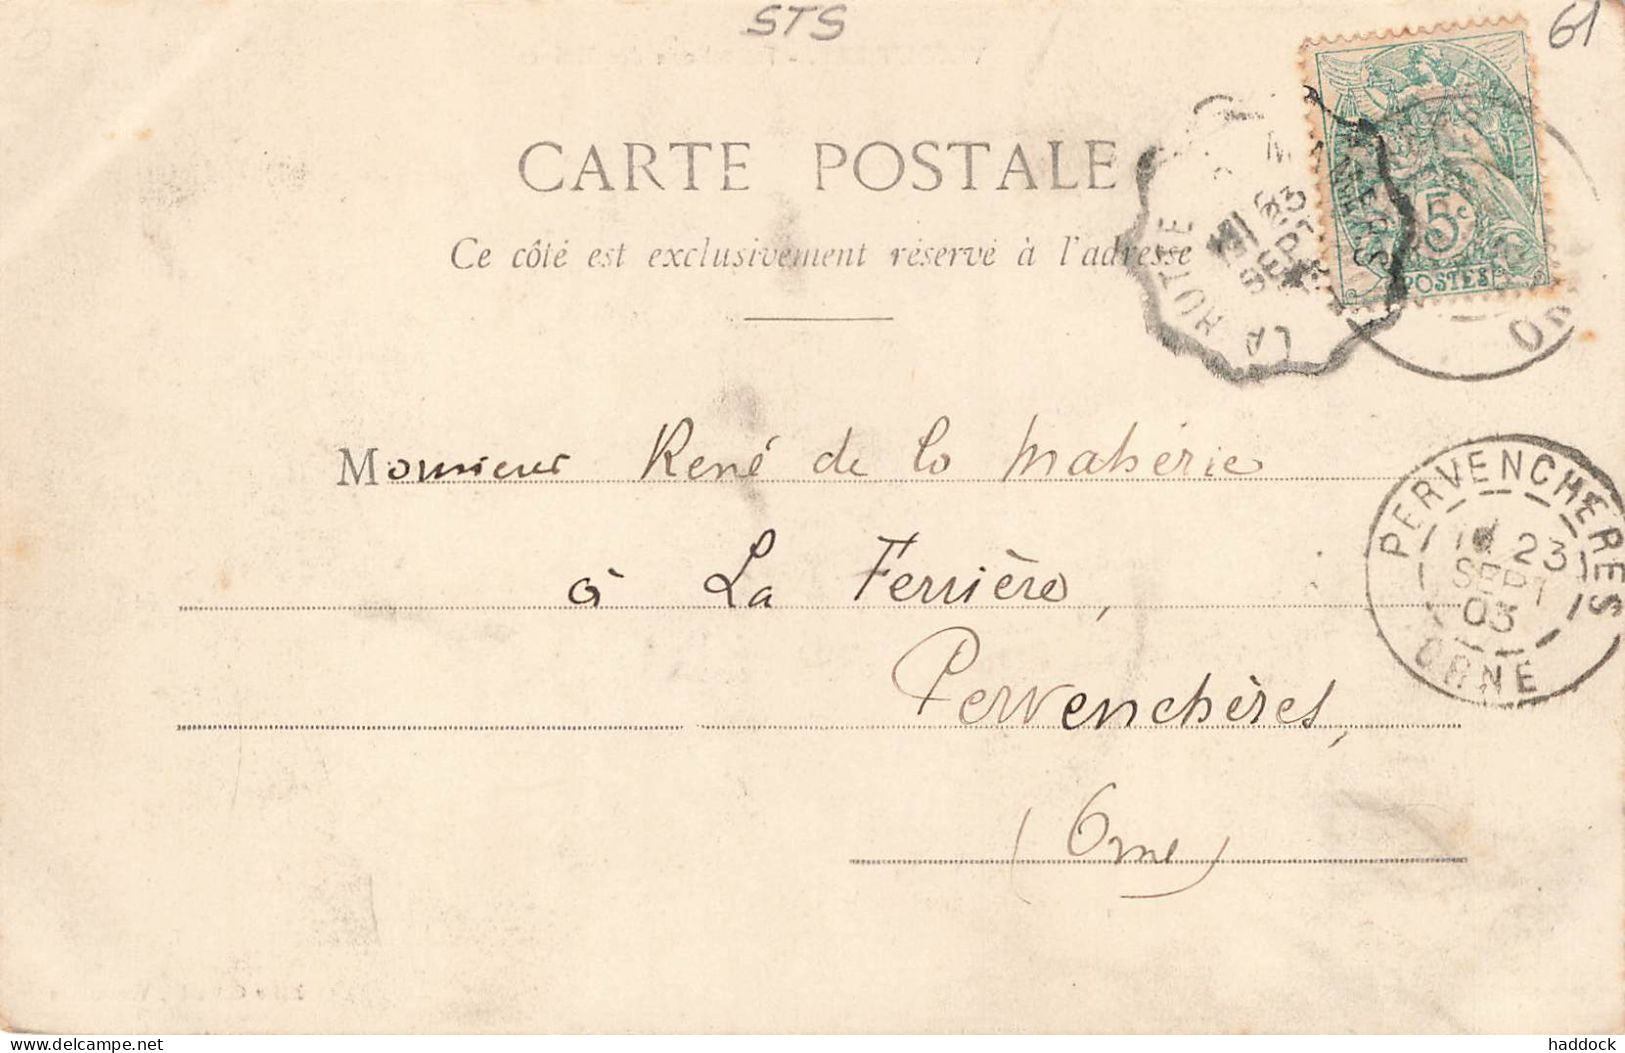 STS
61
CARTE POSTALE
Ce côté est exclusivement réservé à l'adresse
LA HUTTE
23
SEPT
5c
POSTES
OR
Monsieur René de la Mahérie
à La Ferrière,
Pervenchères,
(Orne)
PERVENCHERES
23
SEPT
03
ORNE
delcampe.net
haddock